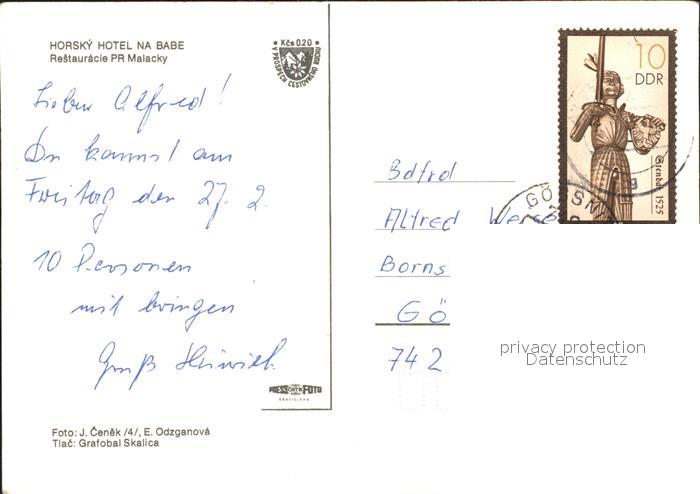 HORSKÝ HOTEL NA BABE
Reštaurácie PR Malacky
Kčs 0.20
V PROSPECH CESTOVNÉHO RUCHU
Lieber Alfred!
Du kannst am
Freitag den 27. 2.
10 Personen
mit bringen
Gruß Heinrich.
PRESSFOTO
BRATISLAVA
Foto: J. Čeněk /4/, E. Odzganová
Tlač: Grafobal Skalica
10
DDR
1525
GÖ
Bdfrd
Alfred
Borns
GÖ
742
privacy protection
Datenschutz